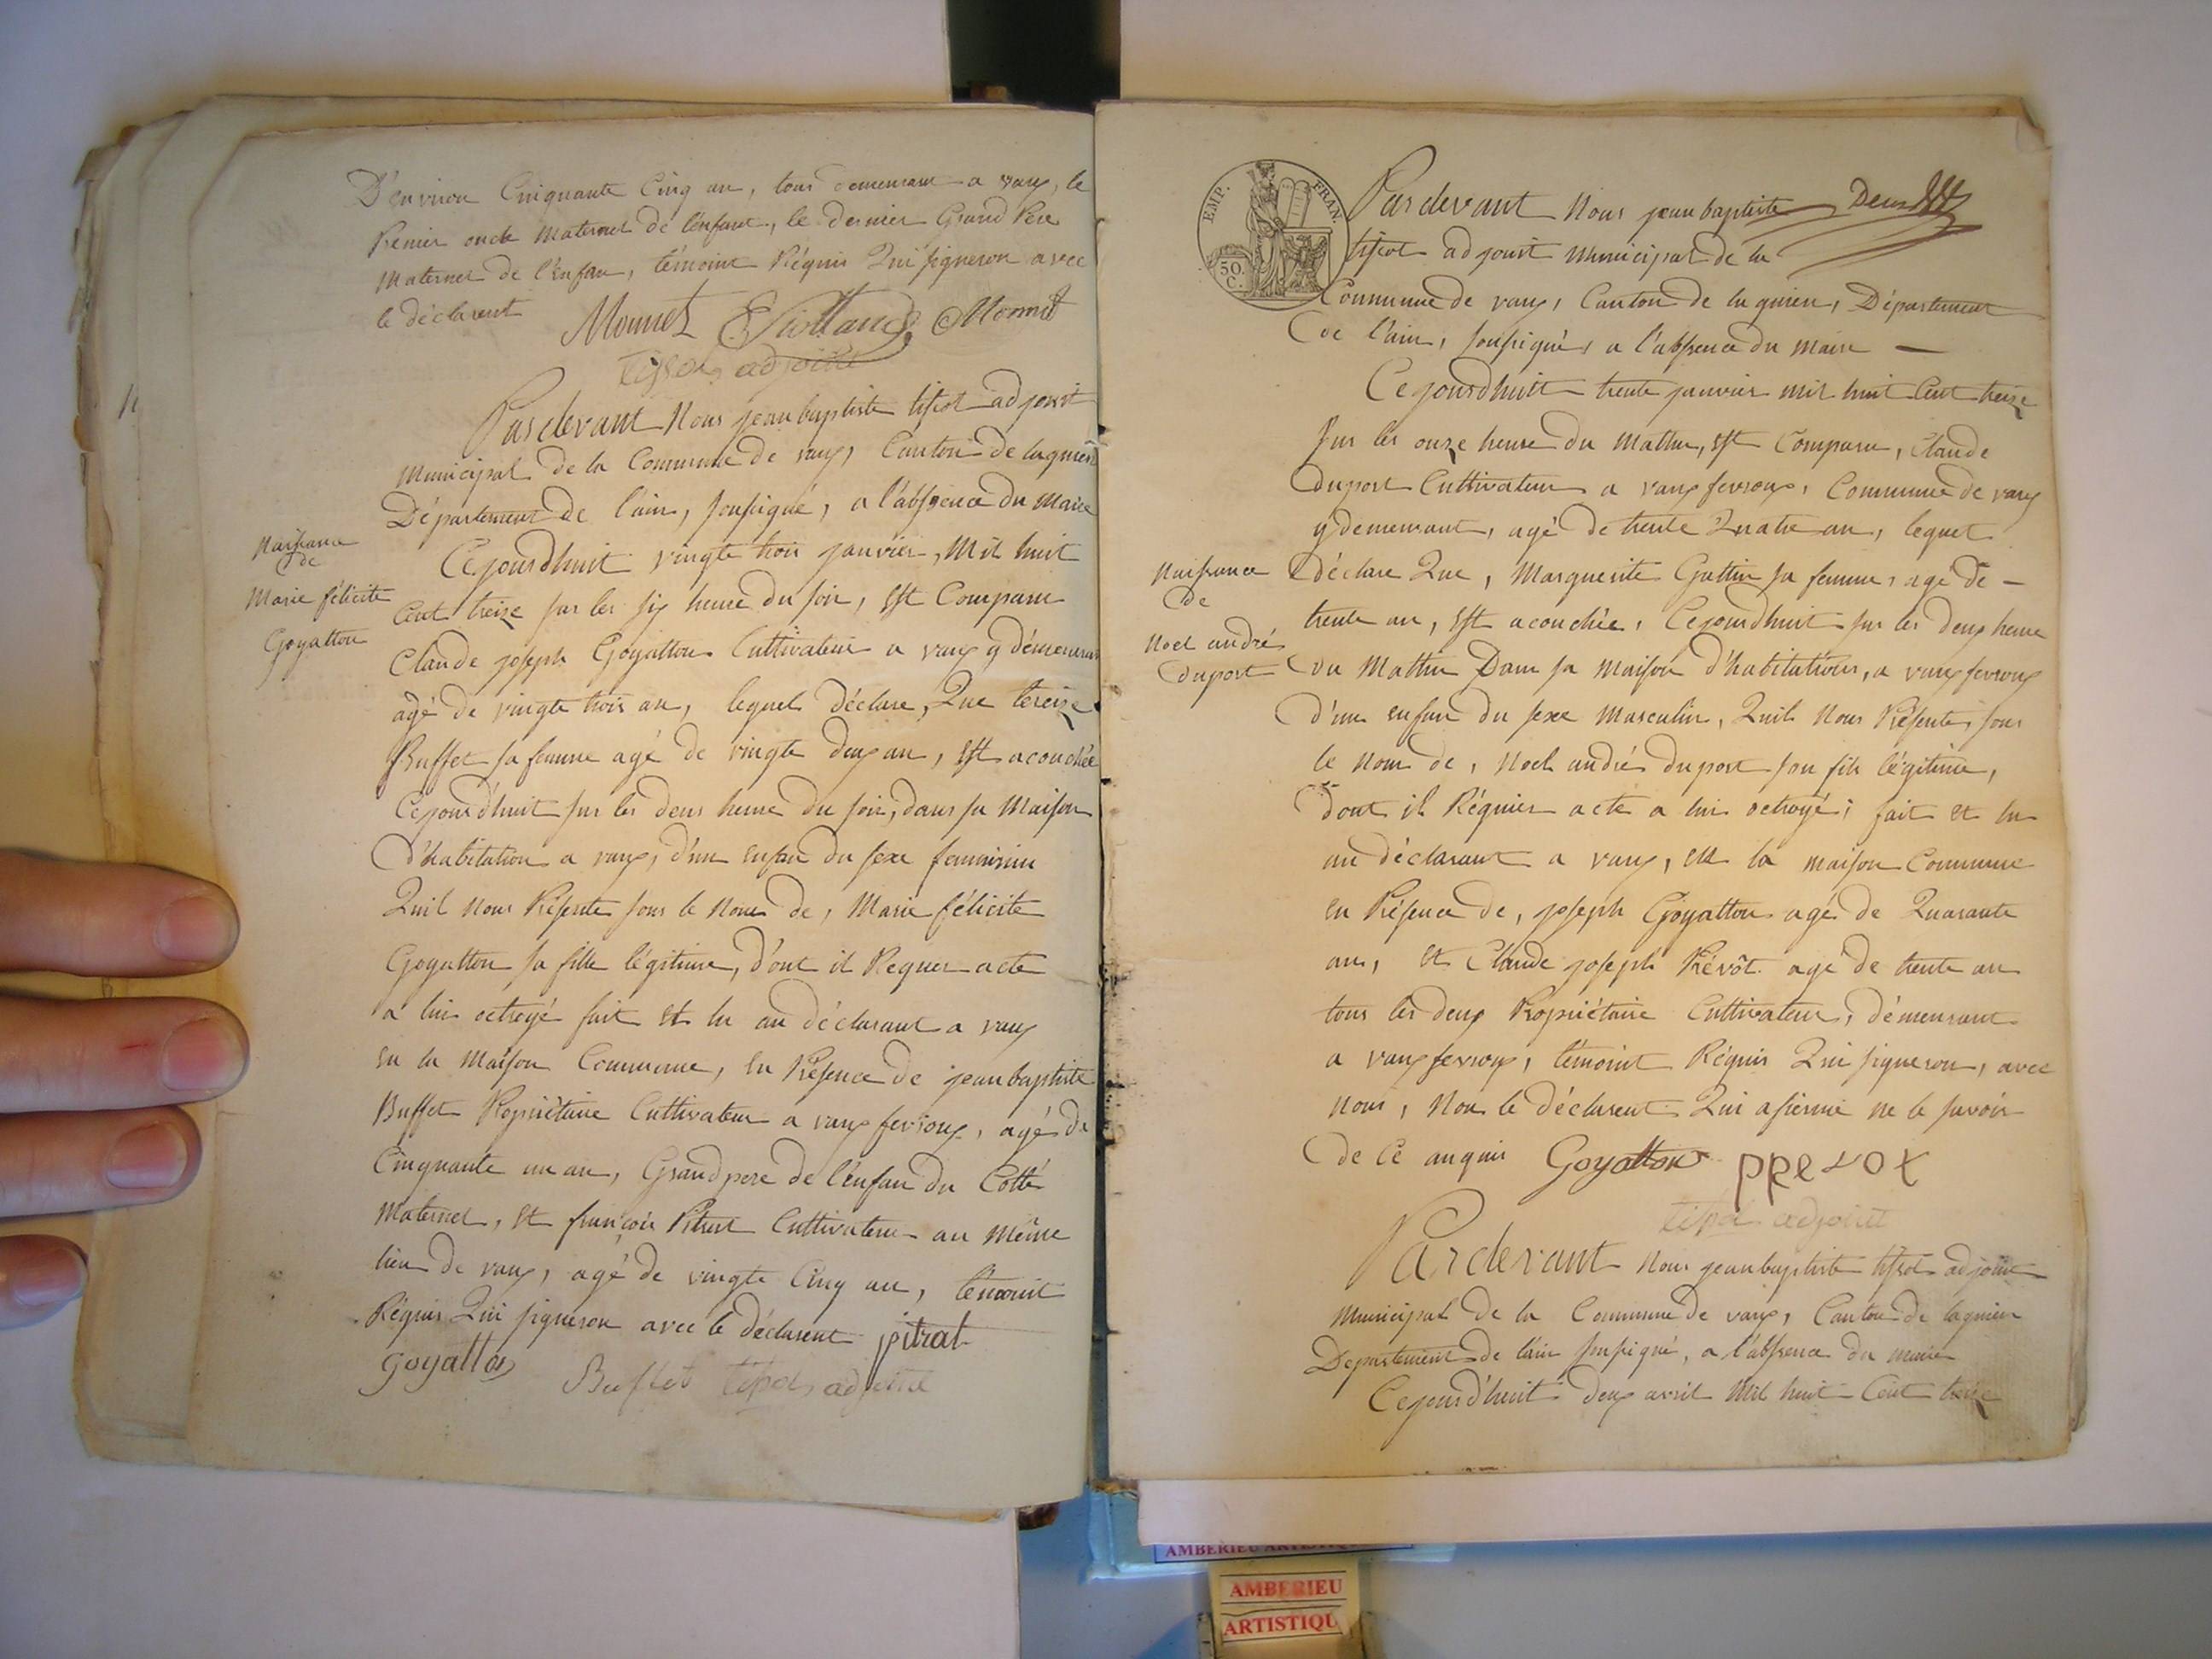 D'environ Cinquante Cinq an, tous demeurant a vaux, le
Premier oncle Maternel de l'enfant, le dernier Grand Pere
Maternel de l'enfan, témoint Réquis Qui signeron avec
le déclarent Monnet E Siolland C Monnet
tissot adjoint
Pardevant Nous jean baptiste tissot adjoint
Municipal de la Commune de vaux, Canton de lagnieu
Département de l'ain, soussigné, a l'abssence du Maire
Naissance
de
Marie félicité
Goyatton
Cejourdhuit vingte trois janvier, Mil huit
Cent treize sur les six heure du soir, Est Comparu
Claude joseph Goyatton Cultivateur a vaux y démeurant
agé de vingte trois an, lequel déclare, Que tereize
Buffet sa femme agé de vingte deux an, Est acouchée
Cejourd'huit sur les deux heure du soir, dans sa Maison
d'habitation a vaux, d'un enfan du sexe feminim
Quil nous Présente sous le Nom de, Marie félicité
Goyatton sa fille légitime, d'ont il Requer acte
a lui octroyé fait Et lu au déclarant a vaux
En la Maison Commune, En Présence de jean baptiste
Buffet Propriétaire Cultivateur a vaux fevroux, agé de
Cinquante un an, Grand pere de l'énfan du Cotté
Maternel, Et françois Pitrat Cultivateur au Même
lieu de vaux, agé de vingte Cinq an, témoint
Réquis Qui signeron avec le déclarent pitrat
goyatton Buffet tissot adjoint
EMP. FRAN.
50.
C.
Pardevant Nous jean baptiste Deux
tissot adjoint Municipal de la
Commune de vaux, Canton de lagnieu, Département
de l'ain, soussigné, a l'abssence du Maire —
Cejourdhuit trente janvier mil huit Cent treize
sur les onze heure du Mattin, Est Comparu, Claude
duport Cultivateur a vaux fevroux, Commune de vaux
y demeurant, agé de trente Quatre an, lequel
Naissance
de
Noel andré
duport
déclare Que, Marguerite Gattin sa femme, agé de —
trente an, Est acouchée, Cejourdhuit sur les deux heure
du Mattin Dans sa Maison d'habitation, a vaux fevroux
d'un enfan du sexe Masculin, Quil Nous Présente, sous
le Nom de, Noel andré duport son fils légitime,
dont il Réquier acte a lui octroyé; fait et lu
au déclarant a vaux, En la maison Commune
En Présence de, joseph Goyatton agé de Quarante
an, Et Claude joseph Prévôt agé de trente an
tous les deux Propriétaire Cultivateur, démeurant
a vaux fevroux, témoint Réquis Qui signeron, avec
Nous, Non le déclarent Qui afiermé ne le savoir
de Ce anquis Goyatton prevot
tissot adjoint
Pardevant Nous jean baptiste tissot adjoint
Municipal de la Commune de vaux, Canton de lagnieu
Departement de l'ain soussigné, a l'abssence du maire
Cejourd'huit deux avril Mil huit Cent treize
AMBERIEU ARTISTIQUE
AMBERIEU
ARTISTIQU